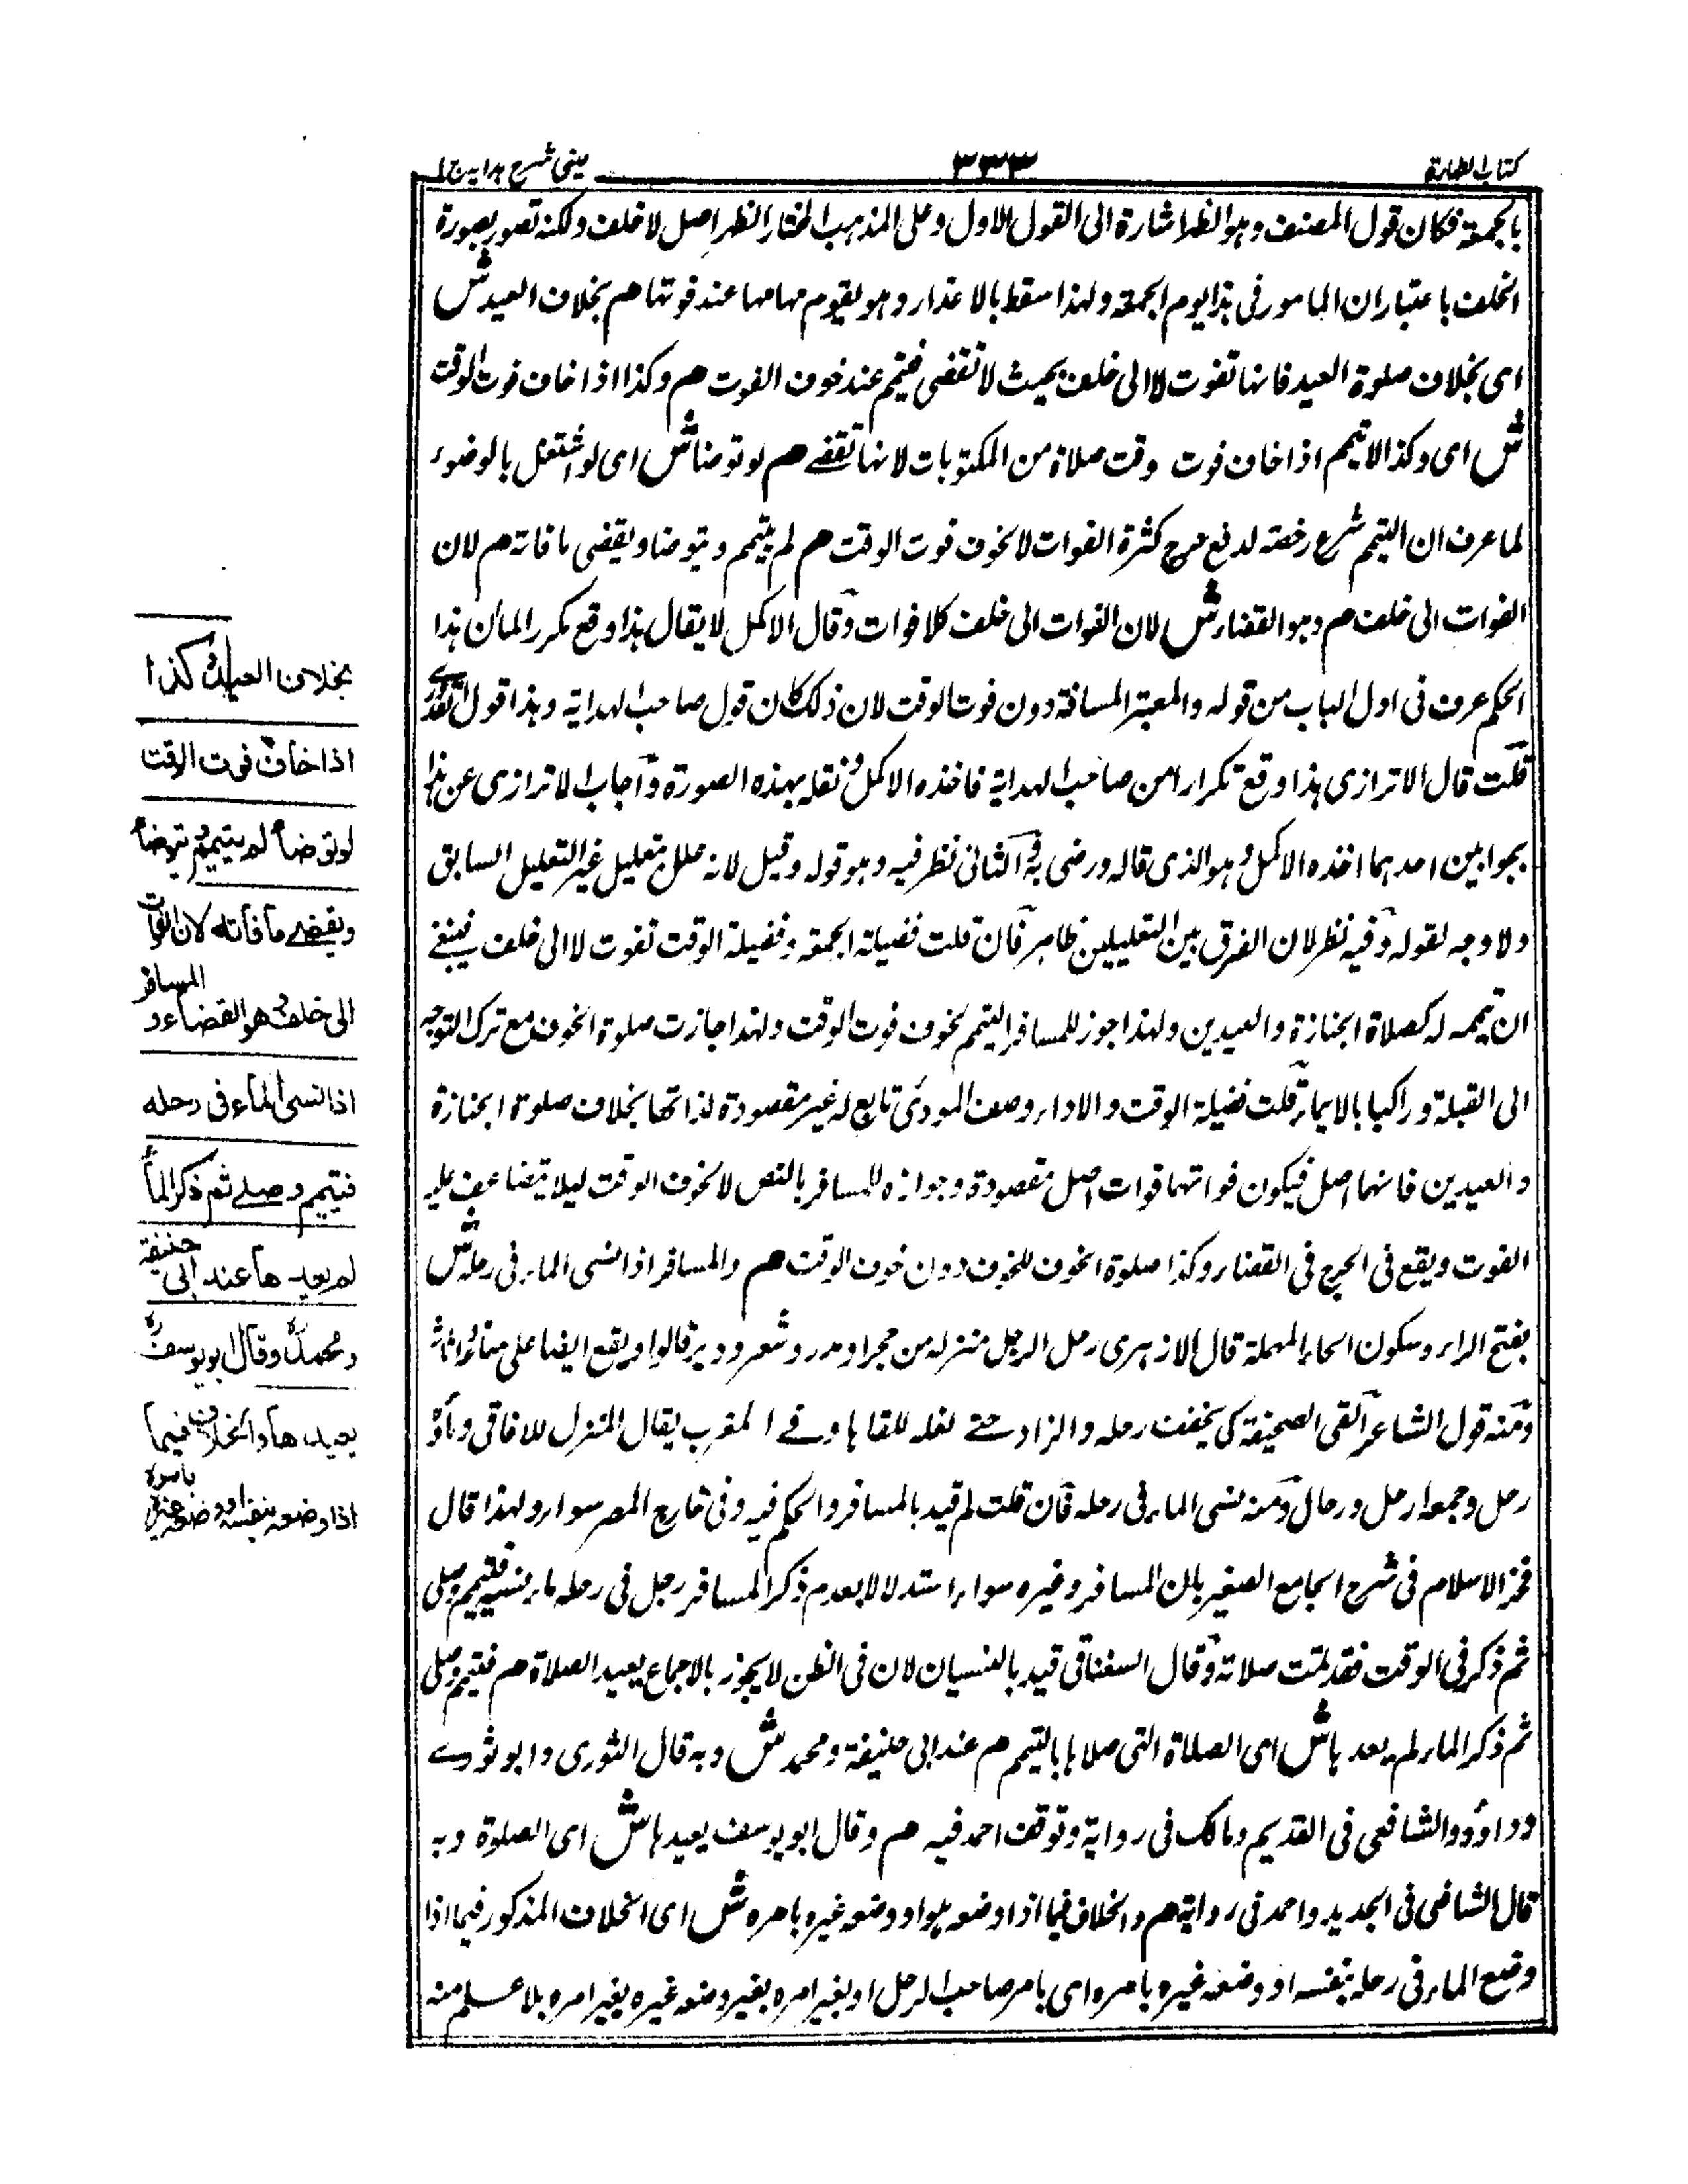 كتاب الطهارة
٣٣٣
عينى شرح هدايه ج ١
بالجمعة فكان قول المصنف وهو الظهر اشارة الى القول الاول وعلى المذهب المختار الظهر اصل لا خلف ولكنه تصور بصورة
الخلف باعتبار ان المامور فى هذا يوم الجمعة ولهذا سقط بالاعذار وهو يقوم مقامها عند فوتها هم بخلاف العيد ش
اى بخلاف صلوة العيد فانها تفوت لا الى خلف بحيث لا تقضى فيتيمم عند خوف الفوت هم وكذا اذا خاف فوت الوقت
ش اى وكذا لا تيمم اذا خاف فوت وقت صلاة من المكتوبات لانها تقضے هم لو توضأ ش اى لو اشتغل بالوضوء
لما عرف ان التيمم شرع رخصة لدفع حرج كثرة الفوات لا لخوف فوت الوقت هم لم يتيمم ويتوضا ويقضى ما فاته هم لان
الفوات الى خلف هم وهو القضاء ش لان الفوات الى خلف كلا فوات وقال الاكمل لا يقال هذا وقع مكررا لمان هذا
الحكم عرف فى اول الباب من قوله والمعتبر المسافة دون فوت الوقت لان ذلك كان قول صاحب الهداية وهذا قول القدورے
قلت قال الاترازى هذا وقع تكرارا من صاحب الهداية فاخذه الاكمل ونقله بهذه الصورة واجاب الاترازى عن هذا
بجوابين احدهما اخذه الاكمل وهو الذى قاله ورضى به والثانى نظر فيه وهو قوله وقيل لانه علل بتعليل غير التعليل السابق
ولا وجه لقوله وفيه نظر لان الفرق بين التعليلين ظاهر فان قلت فضيلة الجمعة وفضيلة الوقت تفوت لا الى خلف فينبغے
ان تيممه له كصلاة الجنازة والعيدين ولهذا جوز للمسافر التيمم لخوف فوت الوقت ولهذا جازت صلوة الخوف مع ترك التوجه
الى القبلة وراكبا بالايماء قلت فضيلة الوقت والاداء وصف المودى تابع له غير مقصودة لذاتها بخلاف صلوة الجنازة
والعيدين فانهما اصل فيكون فواتهما فوات اصل مقصودة وجوازه للمسافر بالنص لا لخوف الوقت ليلا يتضاعف عليه
الفوت ويقع فى الحرج فى القضاء وكذا صلوة الخوف للخوف دون خوف الوقت هم والمسافر اذا نسى الماء فى رحله ش
بفتح الراء وسكون الحاء المهملة قال الازهرى رحل الرجل منزله من حجر او مدر وشعر ووبر قالوا ويقع ايضا على متاعه واثاثه
ومنه قول الشاعر القى الصحيفة كى يخفف رحله والزاد حتے نعله القاها وفے المغرب يقال لمنزل للافاقى ومأواه
رحل وجمعه ارحل ورحال ومنه نسى الماء فى رحله فان قلت لم قيد بالمسافر والحكم فيه وفى خارج المصر سواء ولهذا قال
فخر الاسلام فى شرح الجامع الصغير بان المسافر وغيره سواء استدلالا بعدم ذكر المسافر رجل فى رحله ماء ينسيه فتيمم وصلى
ثم ذكر فى الوقت فقد تمت صلاته وقال السغناقى قيد بالنسيان لان فى الظن لا يجوز بالاجماع يعيد الصلاة هم فتيمم وصلى
ثم ذكر الماء لم يعدها ش اى الصلاة التى صلاها بالتيمم هم عند ابى حنيفة ومحمد ش وبه قال الثورى وابو ثور
وداؤد والشافعى فى القديم ومالك فى رواية وتوقف احمد فيه هم وقال ابو يوسف يعيدها ش اى الصلوة وبه
قال الشافعى فى الجديد واحمد فى رواية هم والخلاف فيما اذا وضعه هو او وضعه غيره بامره ش اى الخلاف المذكور فيما اذا
وضع الماء فى رحله بنفسه او وضعه غيره بامره اى بامر صاحب الرحل او بغير امره بغير وضعه غيره بغير امره بلا علم منه
بخلاف العيد وكذا
اذا خاف فوت الوقت
لو توضأ لم يتيمم ويتوضأ
ويقضے ما فاته لان الفوات
الى خلف وهو القضاء والمسافر
اذا نسى الماء فى رحله
فتيمم وصلے ثم ذكر الماء
لم يعدها عند ابى حنيفة
ومحمد وقال ابو يوسف
يعيدها والخلاف فيما
اذا وضعه بنفسه او وضعه غيره بامره